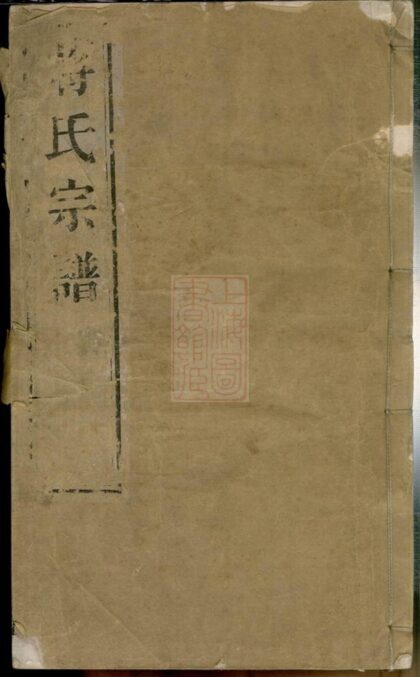 蔣氏宗譜
上海圖
書館藏